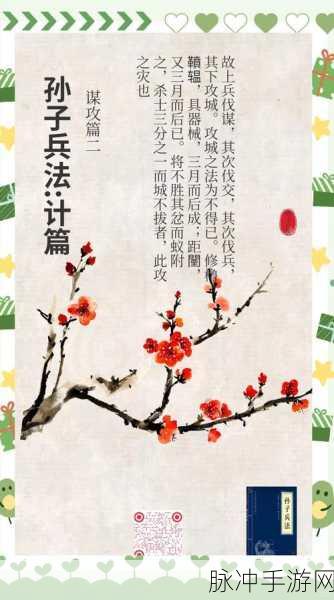 孙子兵法:计篇
谋攻篇二
故上兵伐谋，其次伐交，其次伐兵，
其下攻城。攻城之法为不得已。修
轒辒，具器械，三月而后成；距闉，
又三月而后已。将不胜其忿而蚁附
之，杀士三分之一而城不拔者，此攻
之灾也
孙子兵法
脉冲手游网